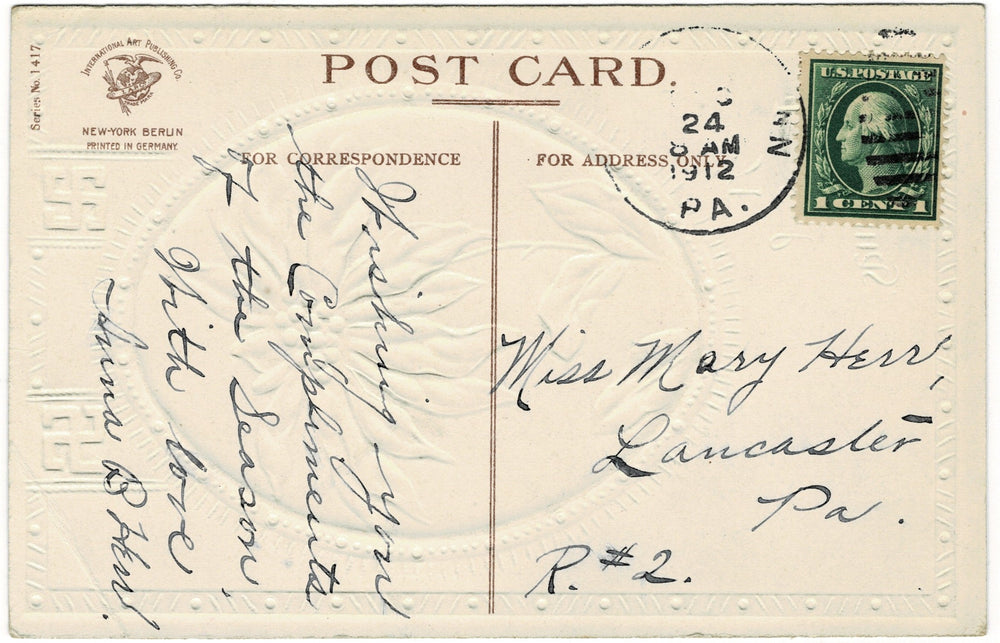 Series No. 1417.
INTERNATIONAL ART PUBLISHING CO.
NEW-YORK BERLIN
PRINTED IN GERMANY.
POST CARD.
FOR CORRESPONDENCE
FOR ADDRESS ONLY
24
8 AM
1912
PA.
U.S. POSTAGE
1 CENT 1
Wishing you
the Compliments
of the Season.
With love
Anna B Herr.
Miss Mary Herr,
Lancaster
Pa.
R. #2.